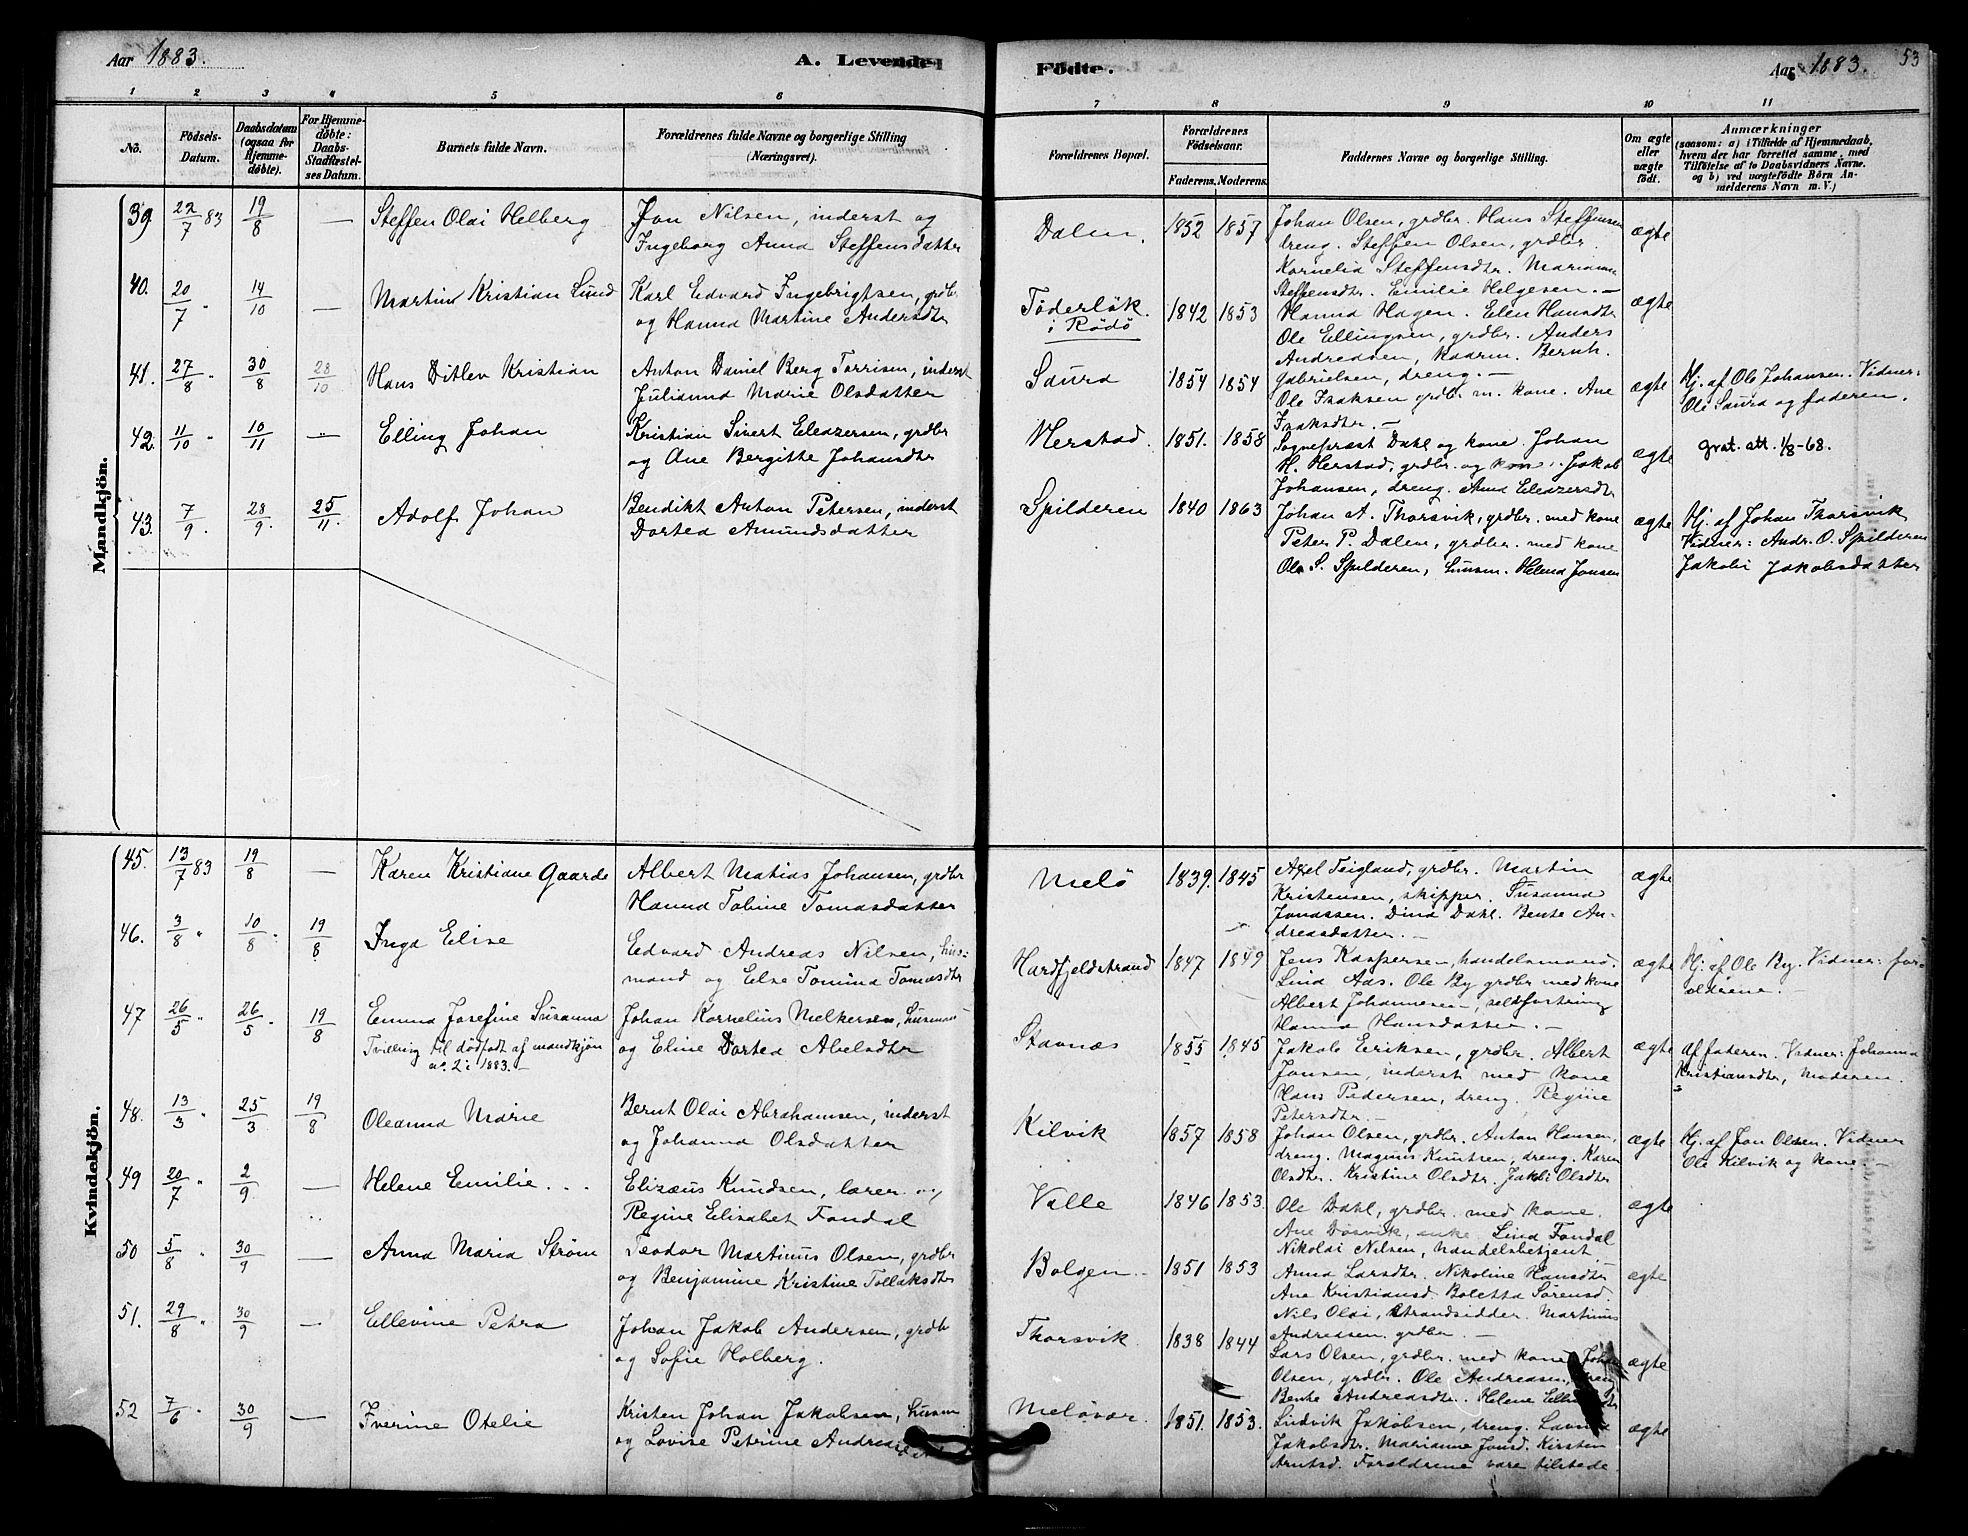 Aar 1883.
A. Levende
Födte.
Aar 1883.
53
1 2 3 4 5 6 7 8 9 10 11
No.
Födsels-
Datum.
Daabsdatum
(ogsaa for
Hjemme-
døbte).
For Hjemme-
døbte:
Daabs-
Stadfæstel-
ses Datum.
Barnets fulde Navn.
Forældrenes fulde Navne og borgerlige Stilling
(Næringsvei).
Forældrenes Bopæl.
Forældrenes
Födselsaar.
Faderens. Moderens.
Faddernes Navne og borgerlige Stilling.
Om ægte
eller
uægte
födt.
Anmærkninger
(saasom: a) i Tilfælde af Hjemmedaab,
hvem der har forrettet samme, med
Tilföielse af to Daabsvidners Navne.
og b) ved uægtefödte Börn An-
melderens Navn m. V.)
Mandkjön.
39 22/7 83 19/8 — Steffen Olai Helberg
Jon Nilsen, inderst og
Ingeborg Anna Steffensdatter
Dalen. 1852 1857
Johan Olsen, grdbr. Hans Steffensen
dreng. Steffen Olsen, grdbr.
Kornelia Steffensdtr. Mariane
Steffensdtr. Emilie Helgesen. —
ægte
40. 20/7 " 14/10 — Martin Kristian Lund
Karl Edvard Ingebrigtsen, grdbr.
og Hanna Martine Andersdtr
Töderlök.
i Rödö
1842 1853
Hanna Hagen. Elen Hansdtr
Ole Ellingsen, grdbr. Anders
Andreasen, Kaarm. Bernh.
Gabrielsen, dreng. —
ægte
41. 27/8 " 30/8 28/10 Hans Ditlev Kristian
Anton Daniel Berg Torrisen, inderst
Julianna Marie Olsdatter
Saura 1854 1854
Ole Isaksen grdbr. m. kone. Ane
Isaksdtr. —
ægte
Hj. af Ole Johansen. Vidner:
Ole Saura og faderen.
42. 11/10 " 10/11 — Elling Johan
Kristian Sivert Eleazersen, grdbr
og Ane Bergitte Johansdtr
Herstad. 1851. 1858
Sogneprest Dahl og kone. Johan
H. Herstad, grdbr. og kone. Jakob
Johansen, dreng. Anna Eleazersdtr
ægte
grat. att. 1/8-68.
43. 7/9. 28/9. 25/11. Adolf Johan
Bendikt Anton Petersen, inderst
Dortea Amundsdatter
Spilderen 1840 1863
Johan A. Thorsvik, grdbr. med kone
Peter P. Dalen, grdbr. med kone
Ole S. Spilderen, husm. Helena Jonsen
ægte
Hj. af Johan Thorsvik
Vidner: Andr. O. Spilderen
Jakobi Jakobsdatter
Kvindekjön.
45. 13/7 83 19/8 — Karen Kristiane Gaarde
Albert Matias Johansen, grdbr
Hanna Tobine Tomasdatter
Melö 1839. 1845
Axel Teigland, grdbr. Martin
Kristensen, skipper. Susanna
Jonassen. Dina Dahl. Bente An-
dreasdatter. —
ægte
46. 3/8 " 10/8 " 19/8 Inga Elise
Edvard Andreas Nilsen, hus-
mand og Else Tomina Tomasdtr
Hardfjeldstrand 1847 1849
Jens Kaspersen, handelsmand.
Lina Ads. Ole By grdbr med kone
Albert Johannesen,
Hanna Hansdatter. —
ægte
Hj. af Ole By. Vidner: for-
ældrene. —
47 26/5 " 26/5 " 19/8 Emma Josefine Susanna
Tvilling til dödfödt af mandkjön
no. 2 i 1883. —
Johan Kornelius Melkersen, husman
og Eline Dortea Abelsdtr
Stavnæs 1855 1845
Jakob Eriksen, grdbr. Albert
Jonsen, inderst med kone
Hans Pedersen, dreng. Regine
Petersdtr. —
ægte
af faderen. Vidner: Johanna
Kristiansdtr, Moderen.
48. 13/3 " 25/3 19/8 Oleanna Marie
Bernt Olai Abrahamsen, inderst
og Johanna Olsdatter
Kilvik 1857 1858
Johan Olsen, grdbr. Anton Hansen,
dreng. Magnus Knutsen, dreng. Karen
Olsdtr. Kristine Olsdtr. Jakobi Olsdtr
ægte
Hj. af Jon Olsen. Vidner
Ole Kilvik og kone. —
49 20/7 " 2/9 — Helene Emilie . . .
Elizæus Knudsen, lærer og
Regine Elisabet Fondal
Valle 1846 1853.
Ole Dahl, grdbr. med kone.
Ane Dösvik, enke. Lina Fondal
Nikolai Nilsen, handelsbetjent
ægte
50 5/8 " 30/9 — Anna Maria Ström
Teodor Martinus Olsen, grdbr
og Benjamine Kristine Tollaksdtr
Bolgen. 1851 1853
Anna Larsdtr. Nikoline Hansdtr
Ane Kristiansd. Boletta Sörensd.
Nils Olai, Strandsidder. Martinus
Andreasen. grdbr. —
ægte
51. 29/8 " 30/9 — Ellevine Petra
Johan Jakob Andersen, grdbr
og Sofie Holberg.
Thorsvik. 1838 1844
Lars Olsen, grdbr. med kone. Johan
Olsen, grdbr. Ole Andreasen, dreng
Bente Andreasdtr. Helene
ægte
52 7/6 " 30/9 — Iverine Otelie
Kristen Johan Jakobsen, husm
og Lovise Petrine Andreasdtr
Melövær. 1851. 1853.
Ludvik Jakobsen, dreng.
Jakobsdtr. Marianne Jonsd. Kirsten
Arntsd. Forældrene vare tilstede.
ægte